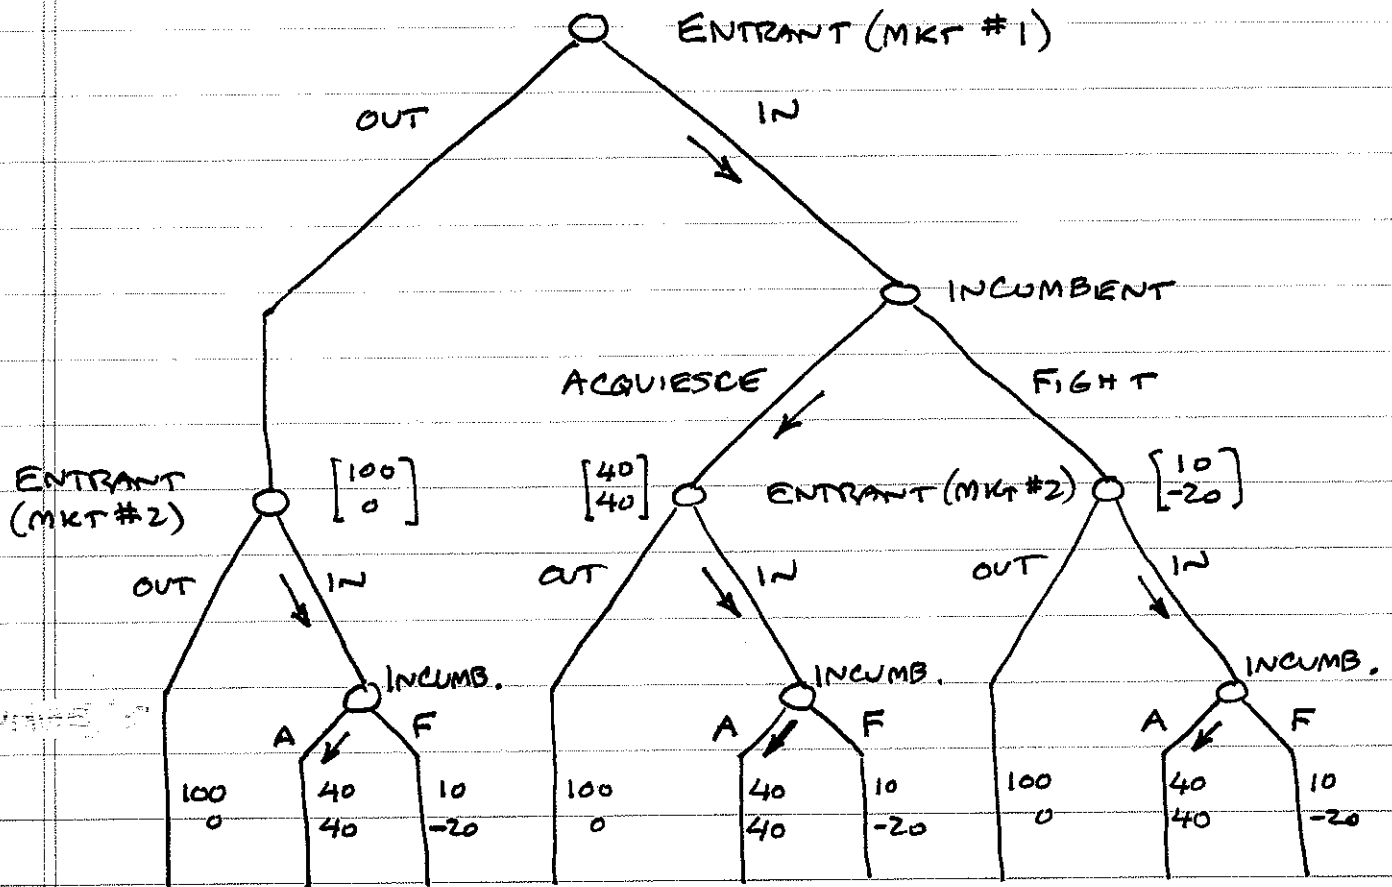 ENTRANT (MKT #1)
OUT
IN
INCUMBENT
ACQUIESCE
FIGHT
ENTRANT
(MKT #2)
[100
0]
[40
40]
ENTRANT (MKT #2)
[10
-20]
OUT
IN
OUT
IN
OUT
IN
INCUMB.
INCUMB.
INCUMB.
A
F
A
F
A
F
100
0
40
40
10
-20
100
0
40
40
10
-20
100
0
40
40
10
-20